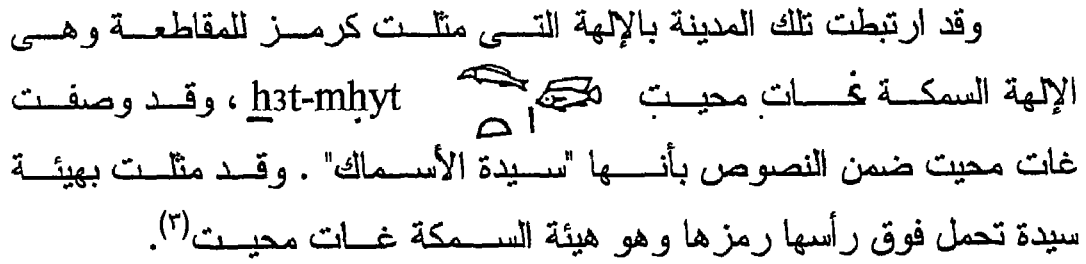 وقد ارتبطت تلك المدينة بالإلهة التى مثلت كرمز للمقاطعة وهى
الإلهة السمكة غات محيت ẖ3t-mḥyt ، وقد وصفت
غات محيت ضمن النصوص بأنها "سيدة الأسماك" . وقد مثلت بهيئة
سيدة تحمل فوق رأسها رمزها وهو هيئة السمكة غات محيت(٣).